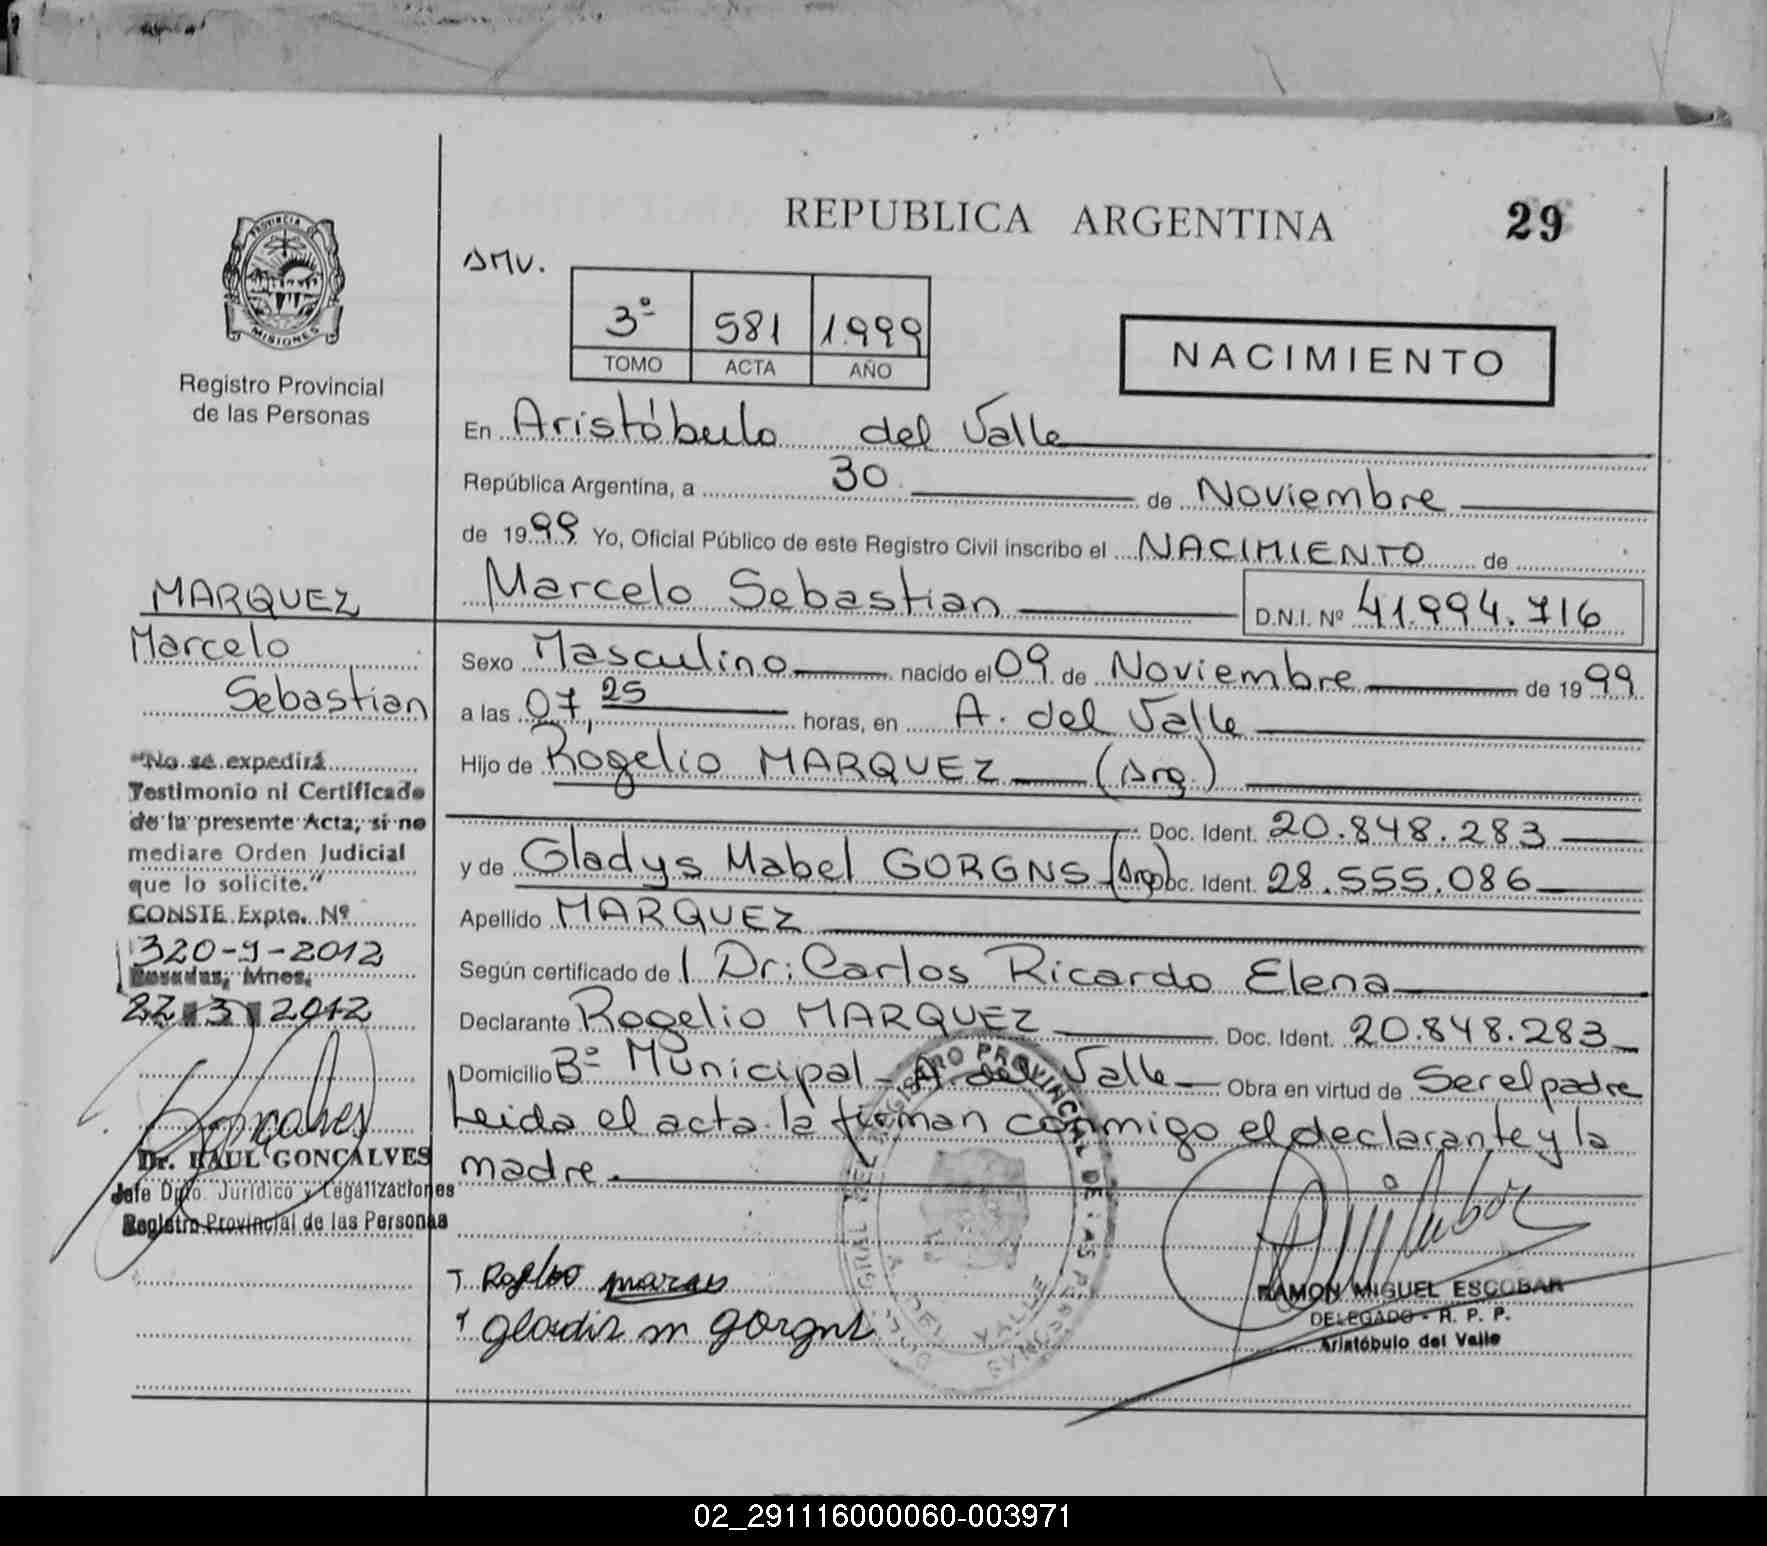 REPUBLICA ARGENTINA
29
PROVINCIA DE
MISIONES
Registro Provincial
de las Personas
3º 581 1.999
TOMO ACTA AÑO
NACIMIENTO
En Aristóbulo del Valle
República Argentina, a 30 de Noviembre
de 1999 Yo, Oficial Público de este Registro Civil inscribo el NACIMIENTO de
Marcelo Sebastian D.N.I. Nº 41.994.716
Sexo Masculino nacido el 09 de Noviembre de 1999
a las 07,25 horas, en A. del Valle
Hijo de Rogelio MARQUEZ (Arg.)
Doc. Ident. 20.848.283
y de Gladys Mabel GORGNS (Arg) Doc. Ident. 28.555.086
Apellido MARQUEZ
Según certificado de Dr: Carlos Ricardo Elena
Declarante Rogelio MARQUEZ Doc. Ident. 20.848.283
Domicilio Bº Municipal - A. del Valle Obra en virtud de Ser el padre
Leida el acta la firman conmigo el declarante y la
madre.
MARQUEZ
Marcelo
Sebastian
"No se expedirá
Testimonio ni Certificado
de la presente Acta, si no
mediare Orden Judicial
que lo solicite."
CONSTE Expte. Nº
320-9-2012
Posadas, Mnes,
22 3 2012
Dr. RAUL GONCALVES
Jefe Dpto. Jurídico y Legalizaciones
Registro Provincial de las Personas
gladis m gorgns
REGISTRO PROVINCIAL DE LAS PERSONAS
DEL VALLE
RAMON MIGUEL ESCOBAR
DELEGADO - R. P. P.
Aristóbulo del Valle
02_291116000060-003971